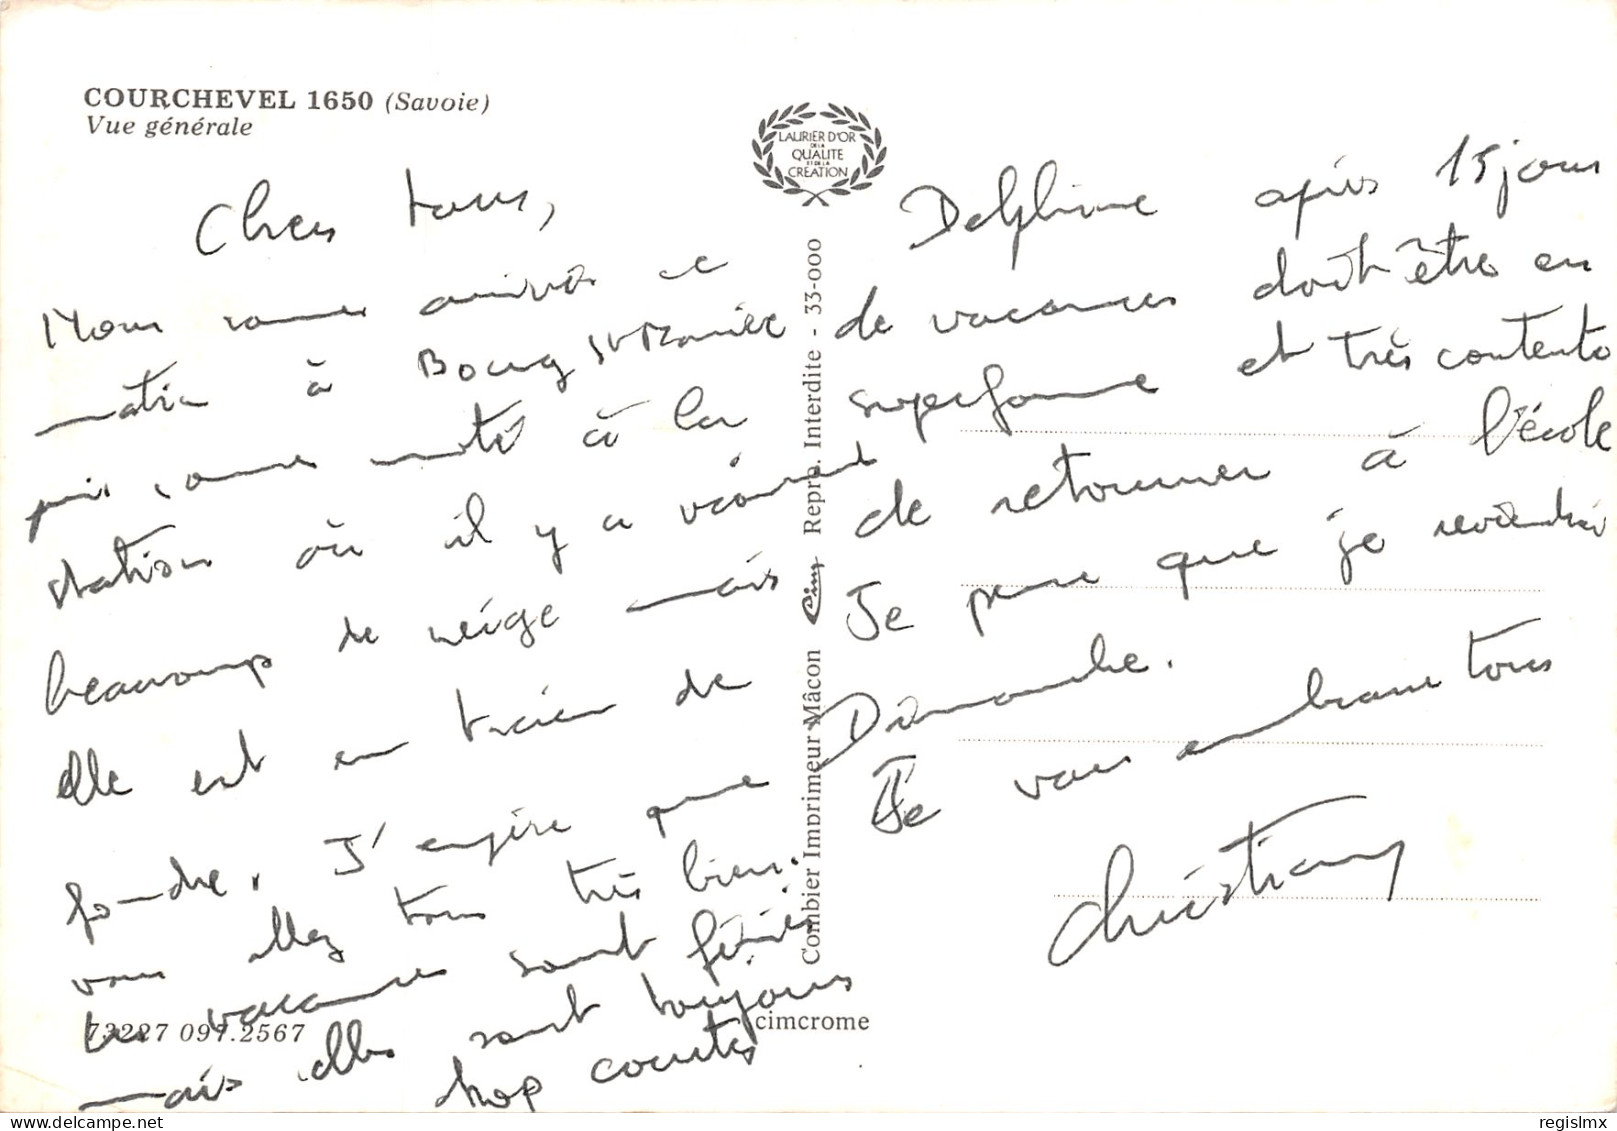 COURCHEVEL 1650 (Savoie)
Vue générale
Chers tous,
Nous sommes arrivés ce
matin à Bourg St Maurice
puis sommes monté à la
station où il y a vraiment
beaucoup de neige mais
elle est en train de
fondre. J'espère que
vous allez tous très bien.
Les vacances sont finies
mais elles sont toujours
trop courtes
73227 097.2567
LAURIER D'OR
DE LA
QUALITE
ET DE LA
CREATION
Combier Imprimeur Mâcon Cim Repro. Interdite - 33-000
cimcrome
Delphine après 15 jours
de vacances doit être en
super forme et très contente
de retourner à l'école
Je pense que je reviendrai
Dimanche.
Je vous embrasse tous
Christiany
regislmx